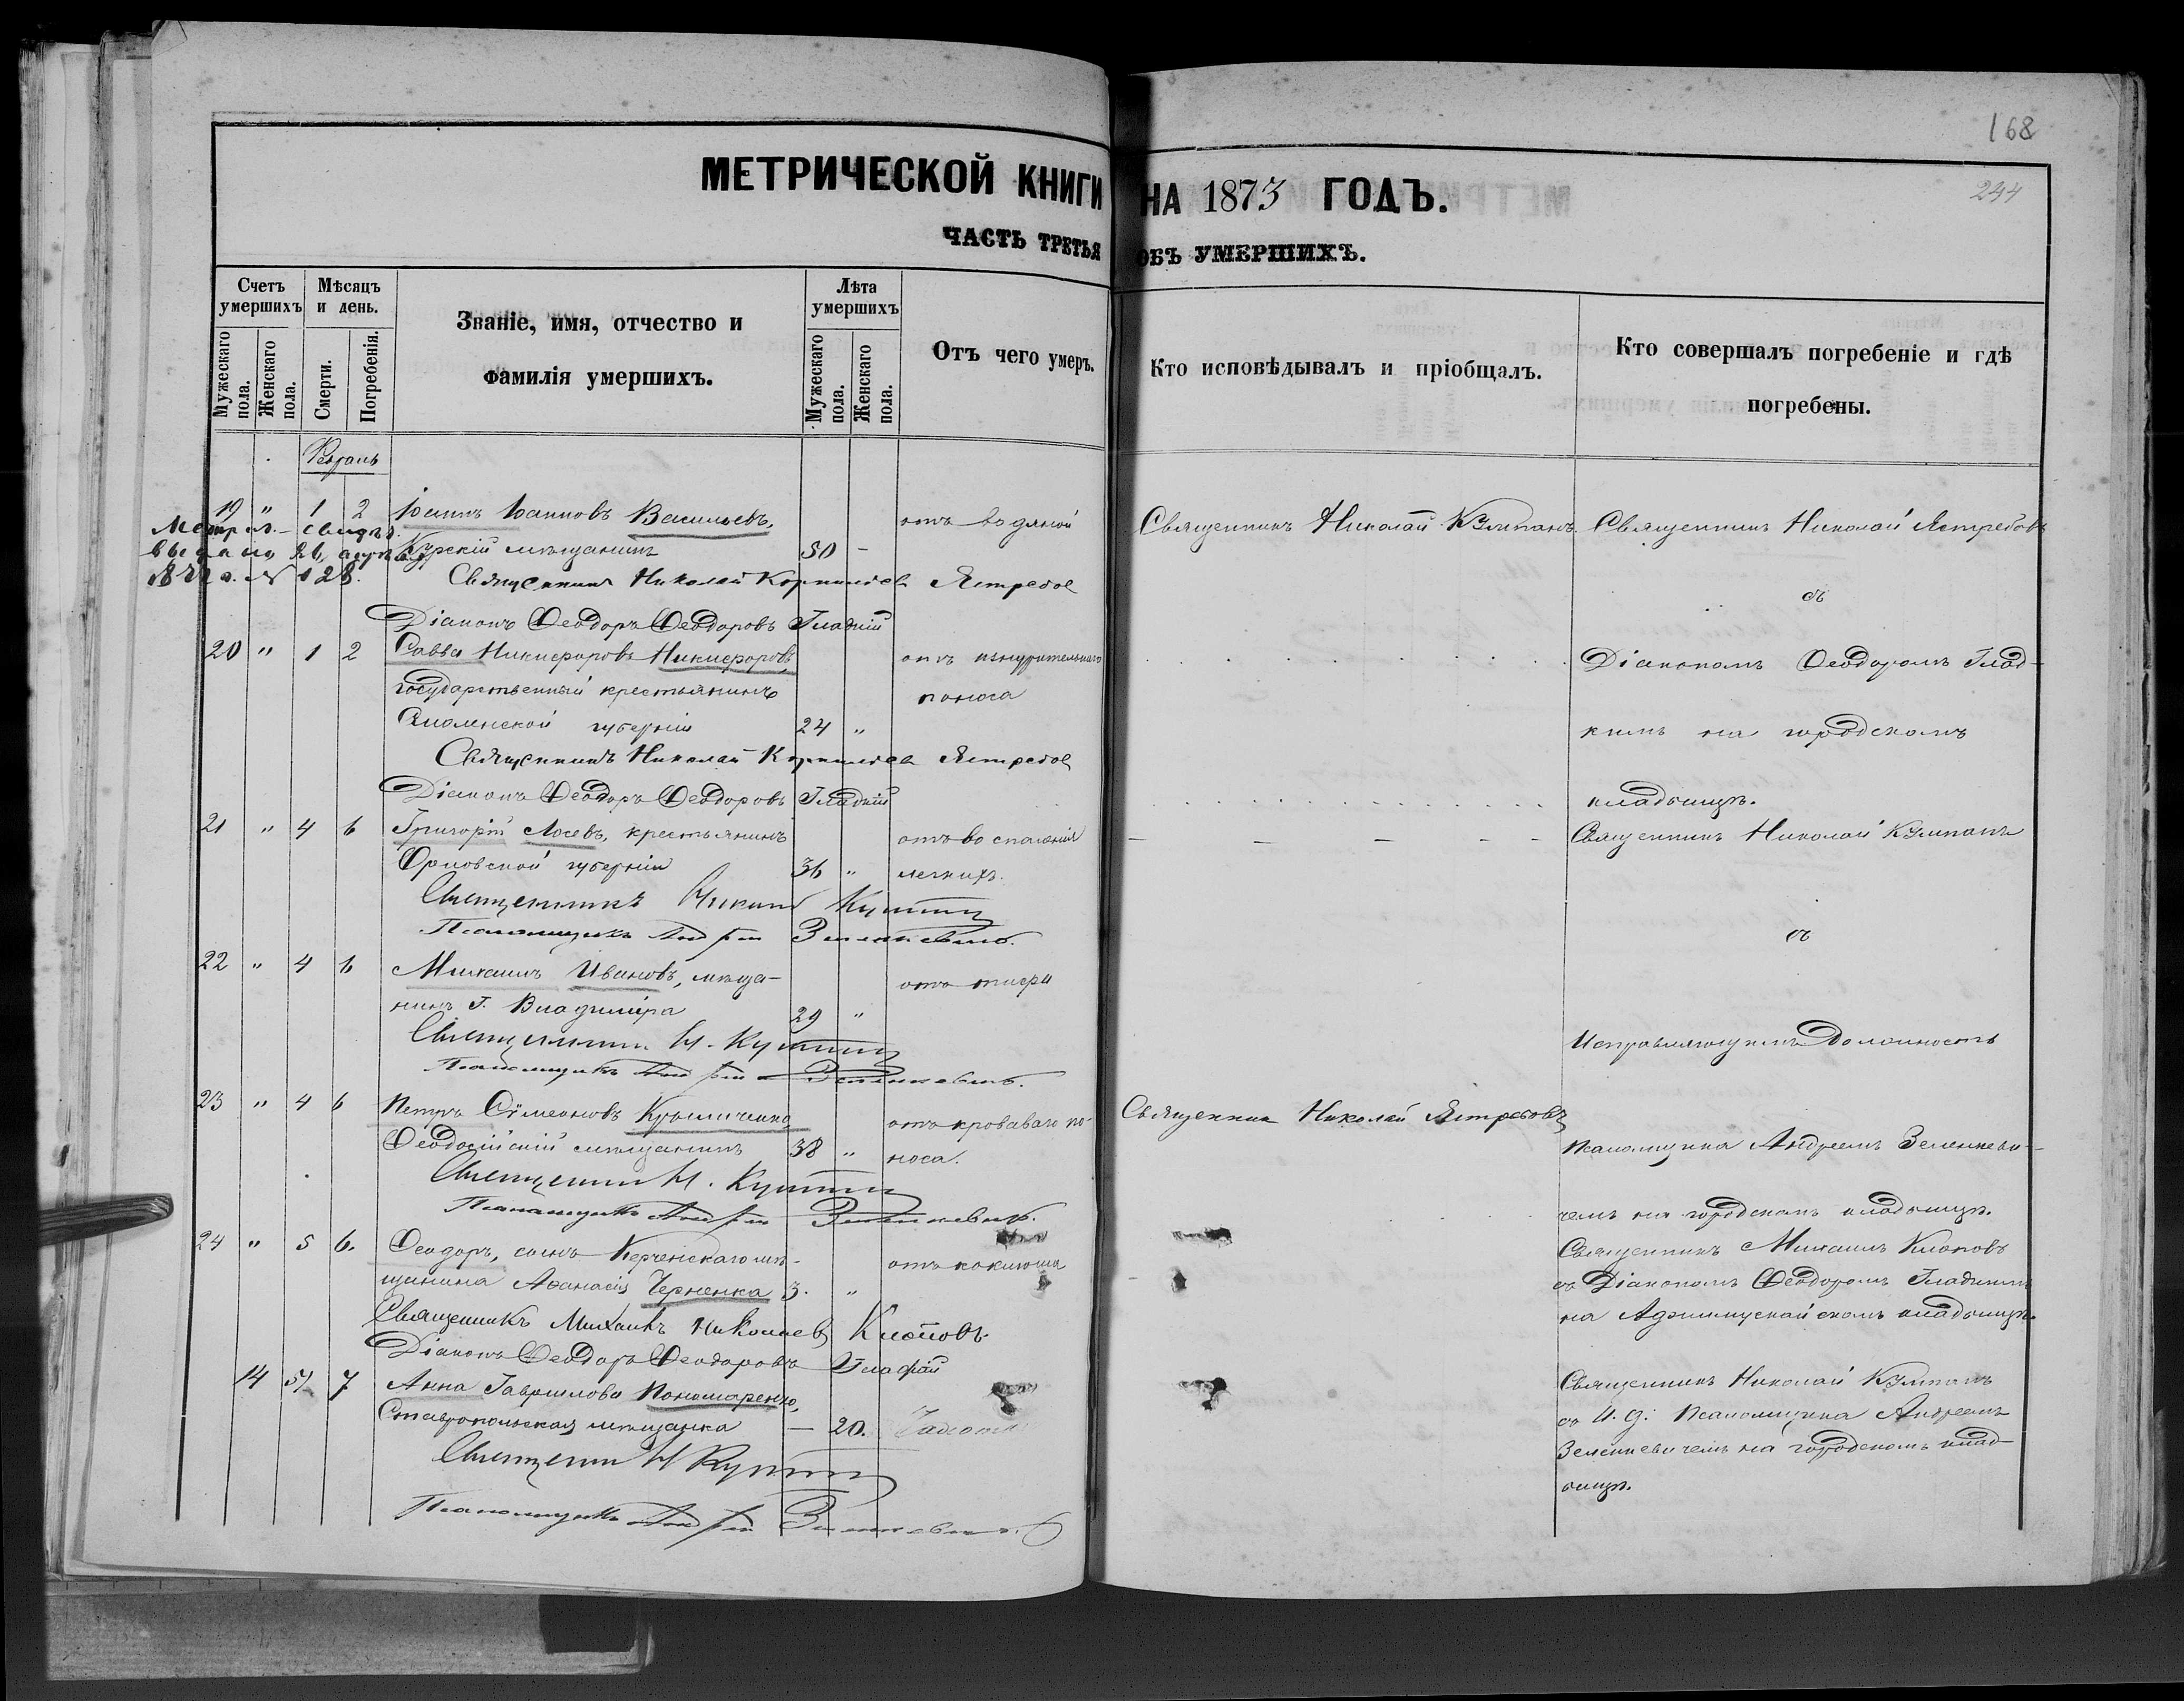 168
МЕТРИЧЕСКОЙ КНИГИ НА 1873 ГОДЪ.
244
ЧАСТЬ ТРЕТЬЯ ОБЪ УМЕРШИХЪ.
Счетъ умершихъ
Мужескаго пола.
Женскаго пола.
Мѣсяцъ и день.
Смерти.
Погребенія.
Званіе, имя, отчество и
фамилія умершихъ.
Лѣта умершихъ
Мужескаго пола.
Женскаго пола.
Отъ чего умеръ.
Кто исповѣдывалъ и пріобщалъ.
Кто совершалъ погребеніе и гдѣ
погребены.
19 " 1 2 Іоаннъ Іоанновъ Васильевъ, отъ водяной Священникъ Николай Кумпанъ Священникъ Николай Ястребовъ
Метрич. свидѣт.
Курскій мѣщанинъ 50 -
№ 128.
Священникъ Николай Корнильев Ястребов
съ
Діаконъ Ѳеодоръ Ѳеодоровъ Гладкій
20 " 1 2 Савва Никифоровъ Никифоровъ, отъ изнурительнаго Діакономъ Ѳеодоромъ Глад-
государственный крестьянинъ поноса
Смоленской губерніи 24 " кимъ на городскомъ
Священникъ Николай Корнильев Ястребов
Діаконъ Ѳеодоръ Ѳеодоровъ Гладкій кладбищѣ.
21 " 4 6 Григорій Лосевъ, крестьянинъ отъ воспаленія Священникъ Николай Кумпанъ
Орловской губерніи 36 " легкихъ.
Священникъ Кумпан
Псаломщикъ Андрей Зеленкевичъ. съ
22 " 4 6 Михаилъ Ивановъ, мѣща- отъ тифа
нинъ г. Владиміра 29 "
Священникъ Н. Кумпан Исправляющимъ Должность
Псаломщикъ Андрей Зеленкевичъ.
23 " 4 6 Петръ Сѵмеоновъ Крымиченко, отъ кроваваго по- Священник Николай Ястребовъ
Ѳеодосійскій мѣщанинъ 38 " носа. псаломщика Андреемъ Зеленкеви-
Священник Н. Кумпан
Псаломщикъ Андрей Зеленкевичъ. чемъ на городскомъ кладбищѣ.
24 " 5 6. Ѳеодоръ, сынъ Керченскаго мѣ- отъ коклюша Священникъ Михаилъ Клоповъ
щанина Аѳанасія Черненка 3. " съ Діакономъ Ѳеодоромъ Гладкимъ
Священникъ Михаилъ Николаев Клоповъ. на Аджимушкайскомъ кладбищѣ.
Діаконъ Ѳеодоръ Ѳеодоровъ Гладкій
14 5 7 Анна Гаврилова Пономаренко, Священникъ Николай Кумпанъ
Ставропольская мѣщанка — 20. Чахотк съ И. д. Псаломщика Андреемъ
Священник Н Кумпан Зеленкевичемъ на городскомъ клад-
бищѣ.
Псаломщикъ Андрей Зеленкевичъ.